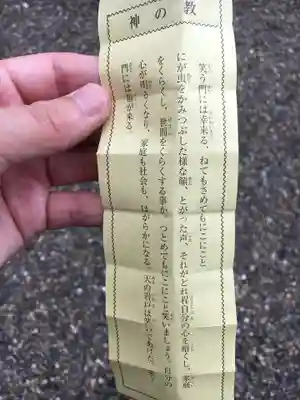 神の教
笑う門には幸来る、ねてもさめてもにこにこと
にが虫をかみつぶした様な顔、とがった声、それがどれ程自分の心を暗くし、家庭
をくらくし、世間をくらくする事か、つとめてもにこにこと笑いましょう。自分の
心が明るくなり、家庭も社会も、ほがらかになる。天の岩戸は笑いであけた。笑う
門には福が来る。